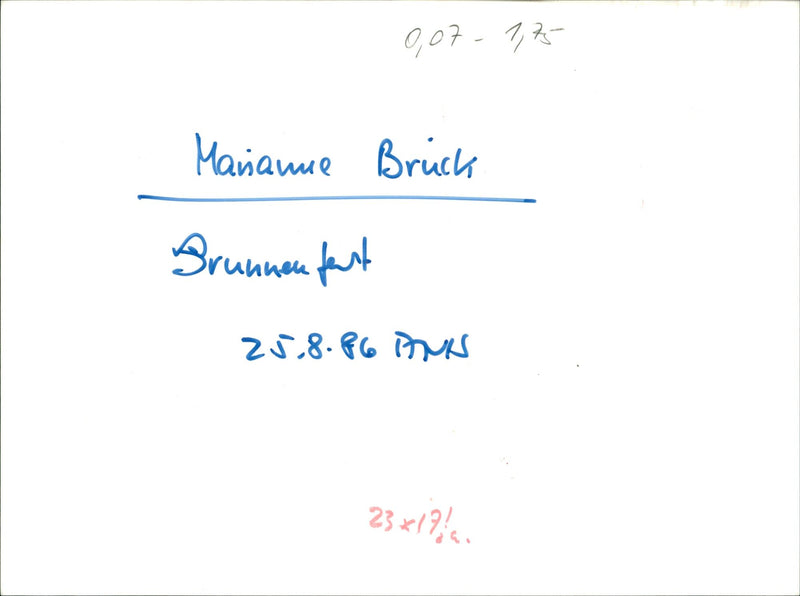 0,07 - 1,75
Marianne Brück
Brunnenfest
25.8.86 ANN
23x17!